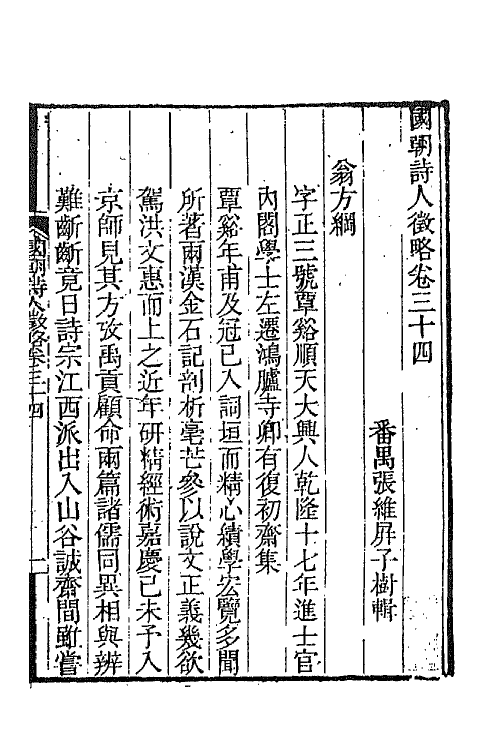 國朝詩人徵略卷三十四
番禺張維屏子樹輯
翁方綱
字正三號覃谿順天大興人乾隆十七年進士官
內閣學士左遷鴻臚寺卿有復初齋集
覃谿年甫及冠已入詞垣而精心績學宏覽多聞
所著兩漢金石記剖析毫芒參以說文正義幾欲
駕洪文惠而上之近年研精經術嘉慶己未予入
京師見其方攷禹貢顧命兩篇諸儒同異相與辨
難齗齗竟日詩宗江西派出入山谷誠齋間雖嘗
國朝詩人徵略卷三十四
一